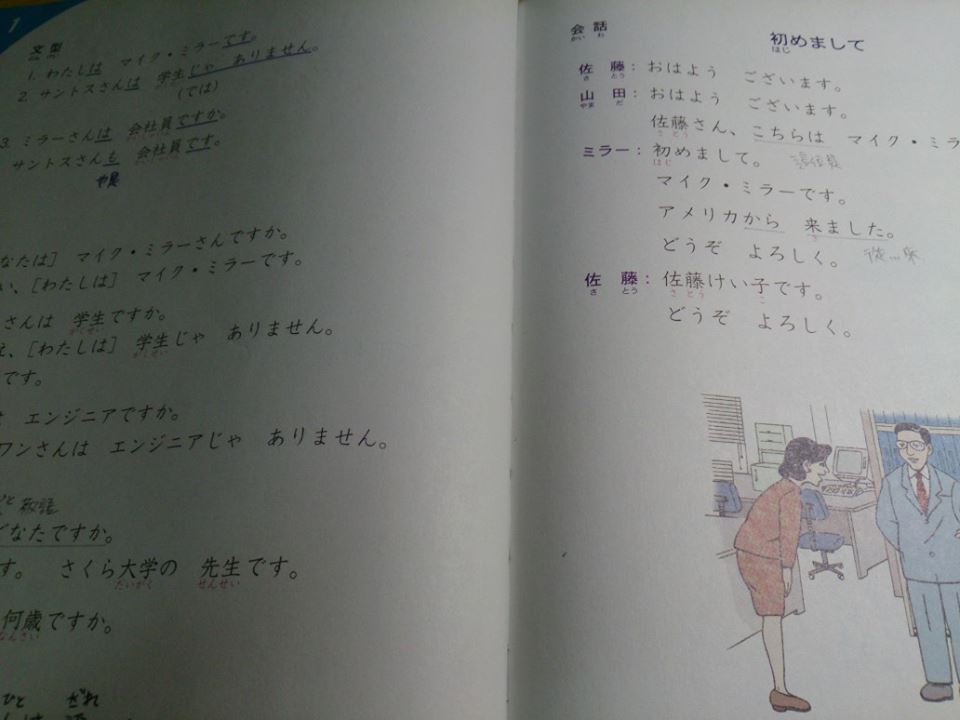 1
文型
1. わたしは マイク・ミラーです。
2. サントスさんは 学生じゃ ありません。
(では)
3. ミラーさんは 会社員ですか。
サントスさんも 会社員です。
也是
なたは] マイク・ミラーさんですか。
い、[わたしは] マイク・ミラーです。
さんは 学生ですか。
がくせい
え、[わたしは] 学生じゃ ありません。
がくせい
です。
エンジニアですか。
ワンさんは エンジニアじゃ ありません。
敬語
どなたですか。
す。 さくら大学の 先生です。
だいがく せんせい
何歳ですか。
なんさい
ひと だれ
会話
かい わ
初めまして
はじ
佐藤：おはよう ございます。
さ とう
山田：おはよう ございます。
やま だ
佐藤さん、こちらは マイク・ミラ
さ とう
ミラー：初めまして。
はじ
マイク・ミラーです。
アメリカから 来ました。
どうぞ よろしく。
佐藤：佐藤けい子です。
さ とう さ とう こ
どうぞ よろしく。